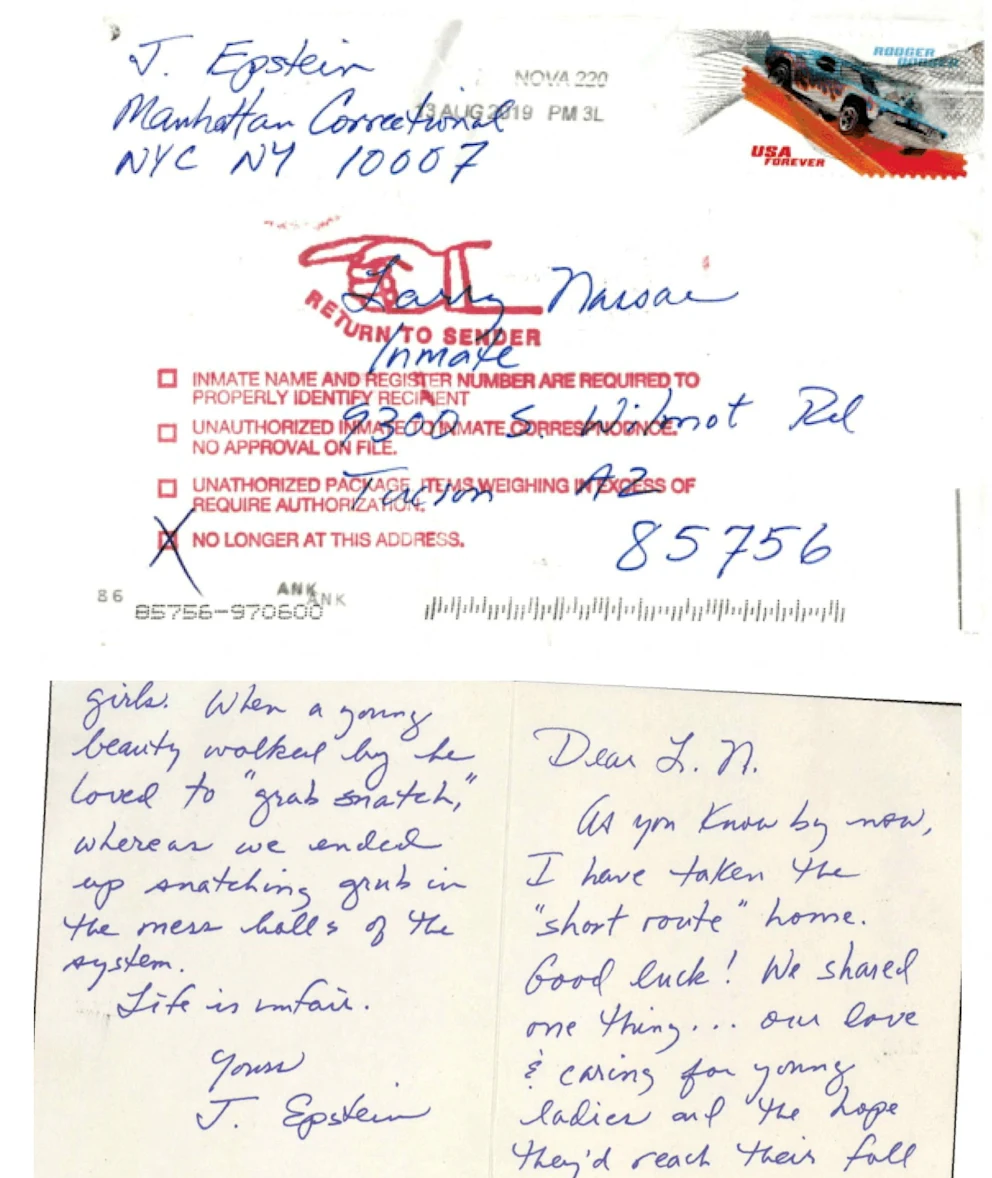 J. Epstein
Manhattan Correctional
NYC NY 10007
NOVA 220
13 AUG 2019 PM 3L
RODGER DODGER
USA
FOREVER
Larry Nassar
Inmate
9300 S. Wilmot Rd
Tucson AZ
85756
RETURN TO SENDER
INMATE NAME AND REGISTER NUMBER ARE REQUIRED TO
PROPERLY IDENTIFY RECIPIENT
UNAUTHORIZED INMATE TO INMATE CORRESPNODNCE.
NO APPROVAL ON FILE.
UNATHORIZED PACKAGE, ITEMS WEIGHING IN EXCESS OF
REQUIRE AUTHORIZATION.
X NO LONGER AT THIS ADDRESS.
86
ANK
ANK
85756-970600
Dear L. N.
As you know by now,
I have taken the
"short route" home.
Good luck! We shared
one thing... our love
& caring for young
ladies and the hope
they'd reach their full
girls. When a young
beauty walked by he
loved to "grab snatch,"
whereas we ended
up snatching grub in
the mess halls of the
system.
Life is unfair.
Yours
J. Epstein